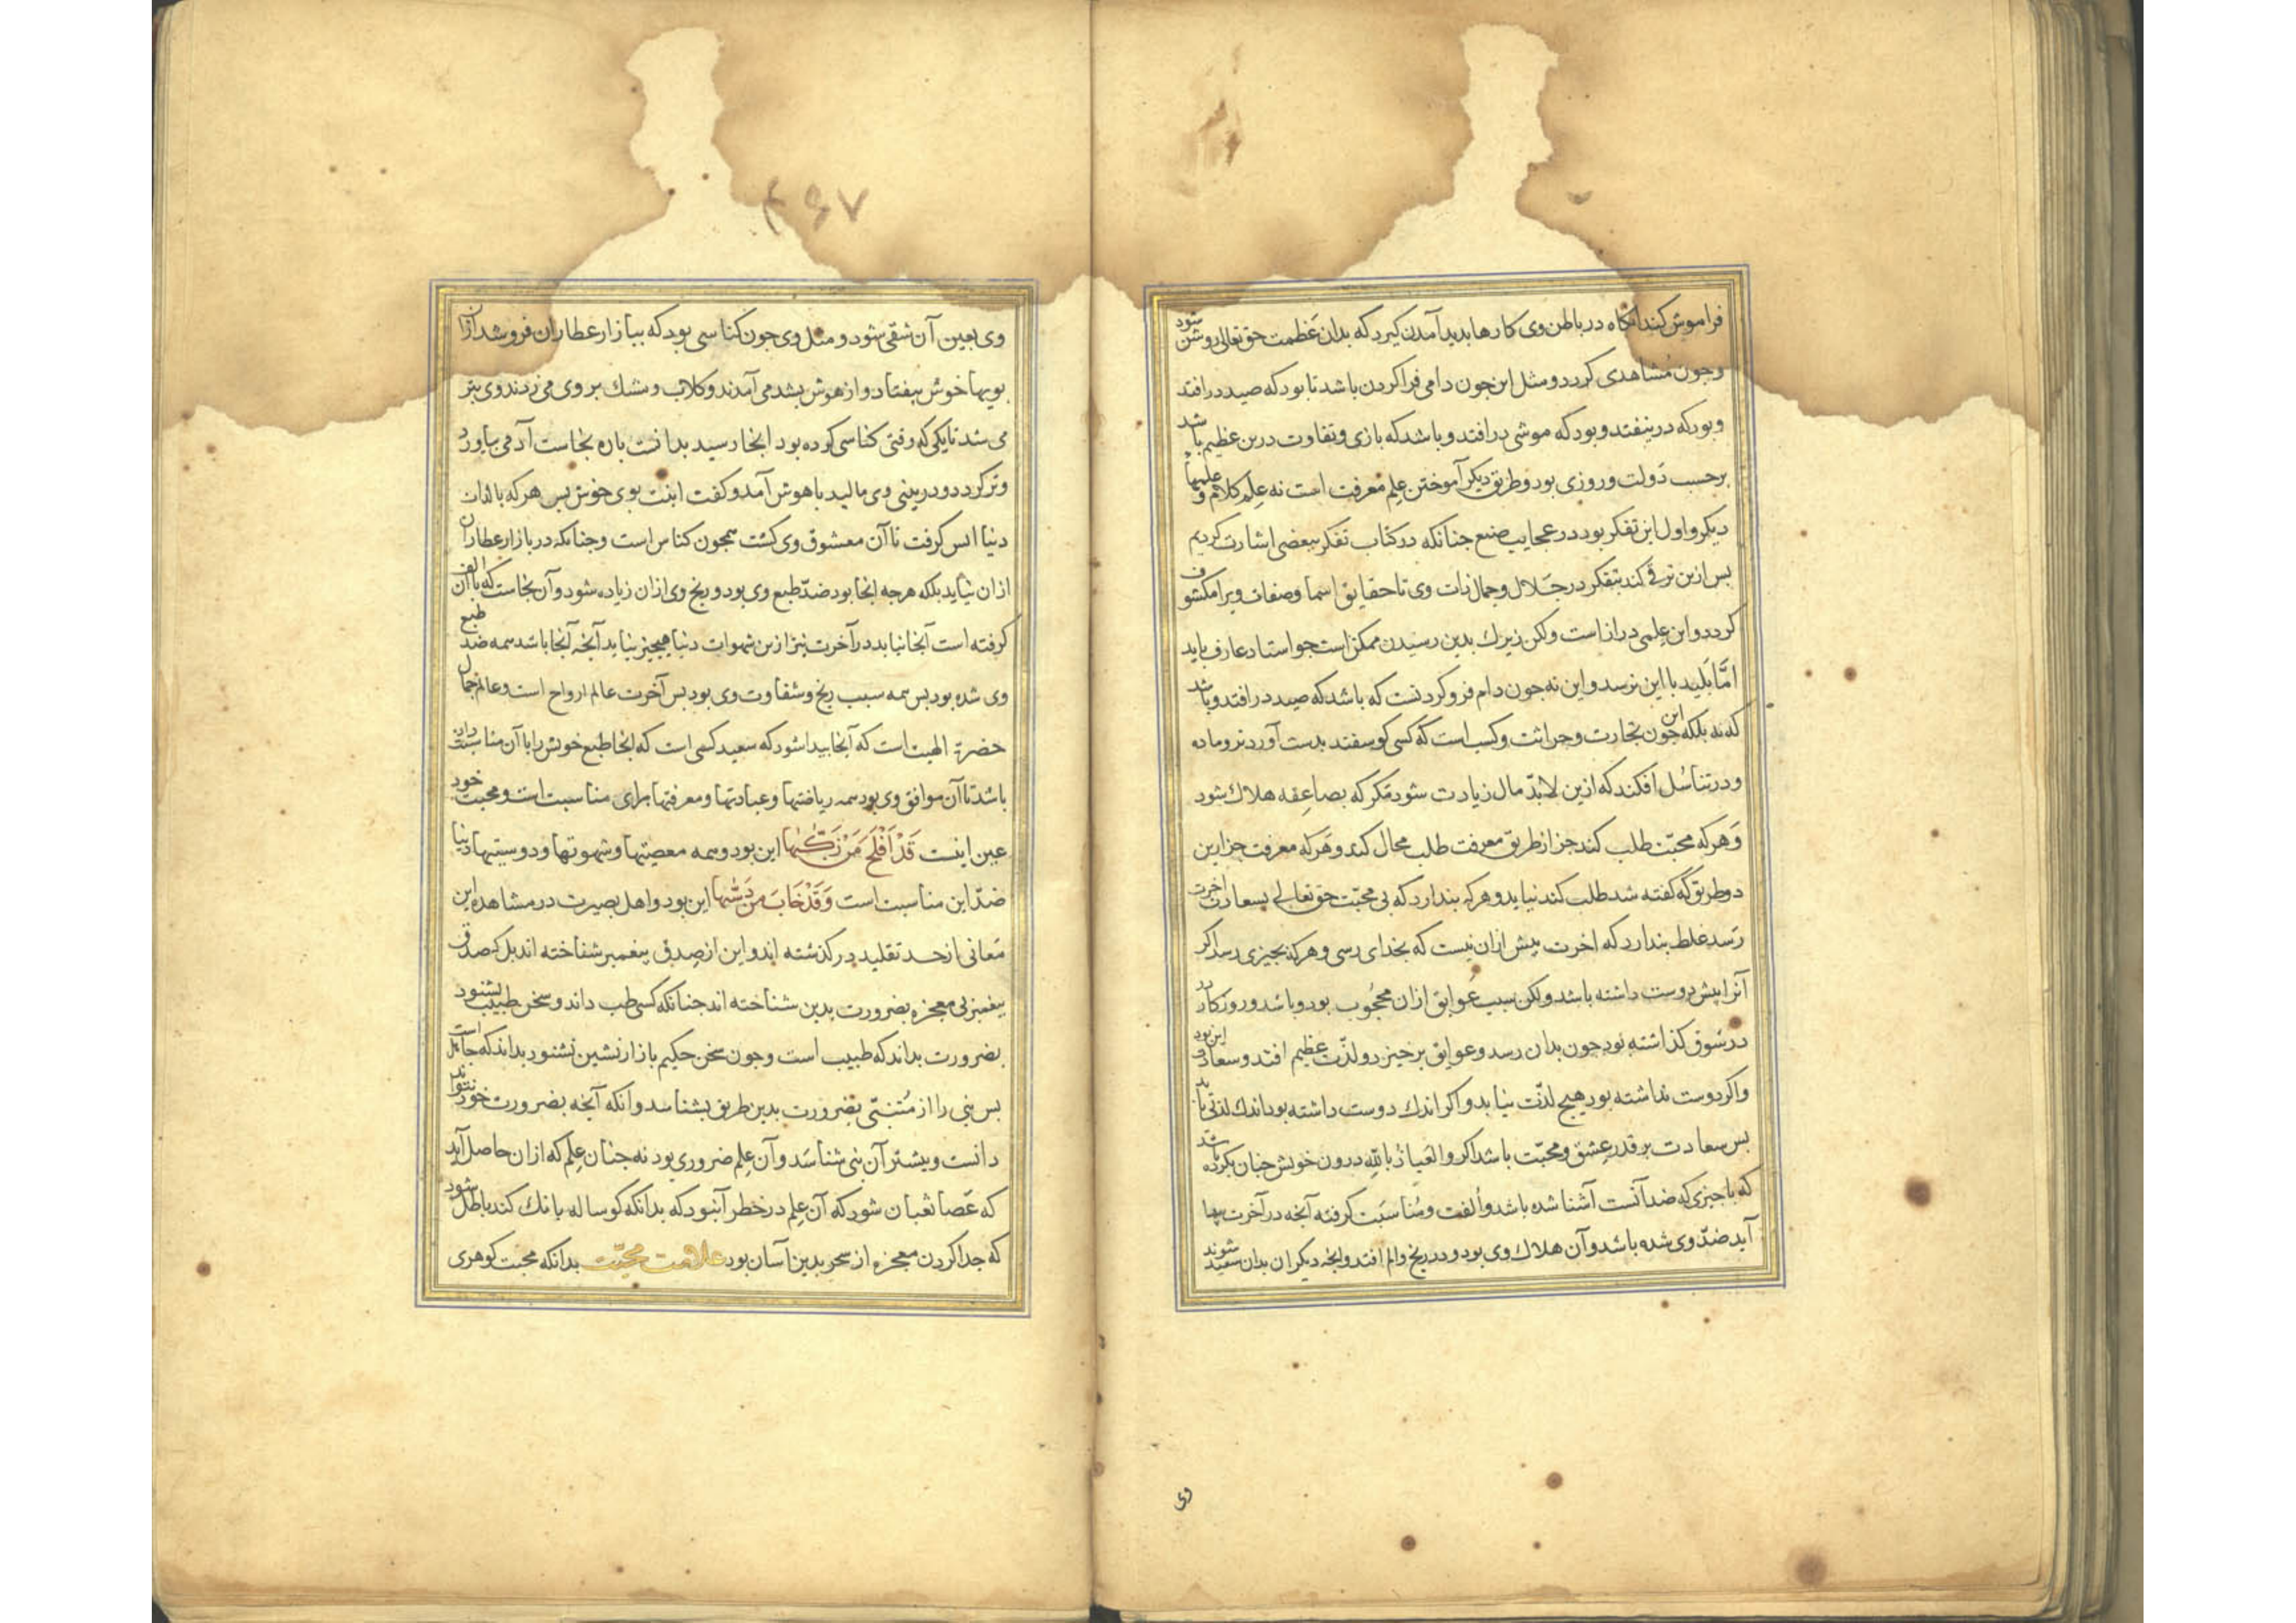 فراموش کند آنکاه در باطن وی کارها بدید آمدن کیرد که بدان عَظمت حق تعالی روشن شود
وجون مُشاهدی کردد ومثل این جون دامی فرا کردن باشد تا بود که صید در افتد
وبود که در نیفتد وبود که موشی در افتد وباشد که بازی وتفاوت درین عظیم باشد
برحسب دَولت وروزی بود وطریق دیکر آموختن عِلم معرفت است نه عِلم کلام و علمهاء
دیکر واول این تفکر بود در عجایب صنع جنانکه در کتاب تفکر ببعضی اشارت کردیم
بس ازین ترقی کند بتفکر در جَلال وجمال ذات وی تا حقایق اسما وصفات ویرا مکشوف
کردد واین عِلمی دراز است ولکن زیرك بدین رسیدن ممکن است جو استاد عارف یابد
امّا بَلید با این نرسد واین نه جون دام فرو کردنست که باشد که صید در افتد وباشد
که نه بلکه این جون تجارت وحراثت وکسب است که کسی کوسفند بدست آورد نر وماده
ودر تناسُل افکند که ازین لابُدّ مال زیادت شود مکر که بصاعِقه هلاك شود
وَهرکه محبّت طلب کند جز از طریق معرفت طلب محال کند وَهرکه معرفت جز ازین
دو طریق که کفته شد طلب کند نیابد وهرکه بندارد که بی محبّت حق تعالی بسعادت اخرت
رَسد غلط بندارد که اخرت بیش ازان نیست که بخدای رسی وهرکه بجیزی رسد اکر
آنرا بیش دوست داشته باشد ولکن سبب عُوایق ازان محجُوب بود وباشد وروزکار در
در شوق کذاشته بود جون بدان رسد وعوایق برخیزد ولذّت عظیم افتد وسعادت این بود
واکر دوست نداشته بود هیج لذّت نیابد واکر اندك دوست داشته بود اندك لذتی یابد
بس سعادت بر قدر عِشق ومحبّت باشد اکر والعَیاذ بالله درون خویش جنان بکرده باشد
که با جیزی که ضد آنست آشنا شده باشد واُلفت ومُناسَبت کرفته آنجه در آخرت بیدا
آید ضدّ وی شده باشد وآن هلاك وی بود ودر رنج والم افتد وانجه دیکران بدان سعید شوند
وی
۴۶۷
وی بعین آن شقی شود ومثل وی جون کناسی بود که ببازار عطاران فروشد ازان
بویها خوش بیفتاد واز هوش بشد می آمدند وکلاب ومشك بر وی می زدند وی بتر
می شد تا یکی که وقتی کناسی کرده بود انجا رسید بدانست باره نجاست آدمی بیاورد
وتر کرد ودر بینی وی مالید باهوش آمد وکفت اینت بوی خوش بس هرکه با لذات
دنیا انس کرفت تا آن معشوق وی کشت همجون کناس است وجنانکه در بازار عطاران
ازان نیابد بلکه هرجه انجا بود ضدّ طبع وی بود ورنج وی ازان زیاده شود وآن نجاست که با آن الف
کرفته است آنجا نیابد در آخرت نیز ازین شهوات دنیا هیجیز نیابد آنجه آنجا باشد همه ضد طبع
وی شده بود بس همه سبب رنج وشقاوت وی بود بس آخرت عالم ارواح است وعالم جمال
حضرة الهیت است که آنجا بیدا شود که سعید کسی است که انجا طبع خویش را با آن مناسبت داده
باشد تا آن موافق وی بود همه ریاضتها وعبادتها ومعرفتها برای مناسبت است ومحبت خود
عین اینست قَدْ اَفْلَحَ مَنْ زَکّٰیها این بود وهمه معصیتها وشهوتها ودوستیها دنیا
ضدّ این مناسبت است وَقَدْ خَابَ مَن دَسّٰیها این بود واهل بصیرت در مشاهده این
مَعانی از حد تقلید در کذشته اند واین از صِدق بیغمبر شناخته اند بل که صدق
بیغمبر بی معجزه بضرورت بدین شناخته اند جنانکه کسی طب داند وسخن طبیب بشنود
بضرورت بداند که طبیب است وجون سخن حکیم بازار نشین بشنود بداند که جاهل است
بس نبی را از مُتنبّی بضرورت بدین طریق بشناسد وانکه آنجه بضرورت خود نتواند
دانست وبیشتر آن نبی شناسَد وآن عِلم ضروری بود نه جنان عِلم که ازان حاصل آید
که عَصا ثعبان شود که آن عِلم در خطر آنبود که بدانکه کوساله بانك کند باطل شود
که جدا کردن معجزه از سحر بدین آسان بود علامت محبّت بدانکه محبت کوهری